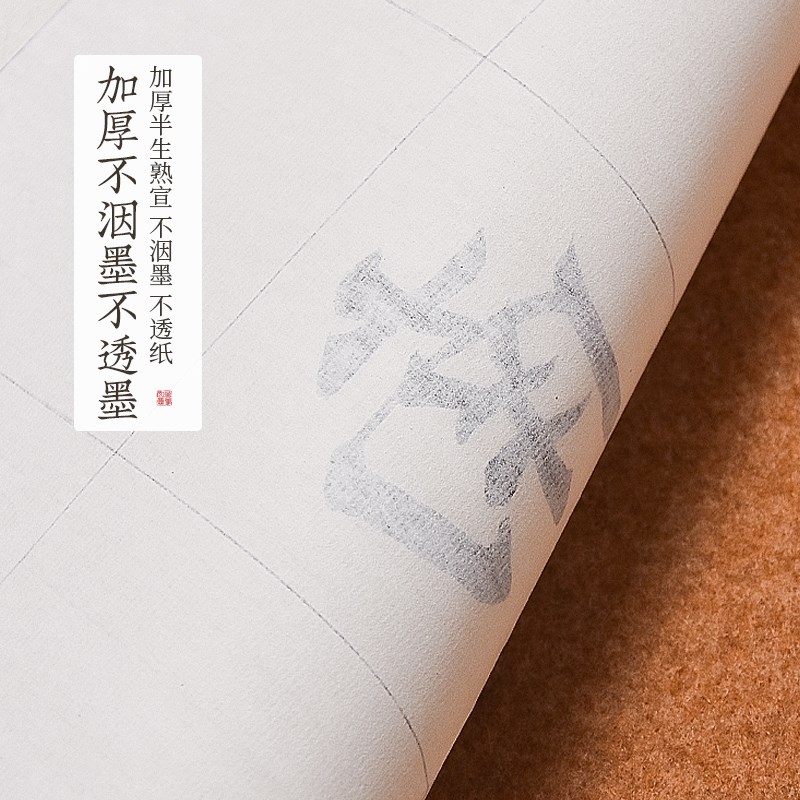 加厚半生熟宣 不洇墨 不透纸
加厚不洇墨不透墨